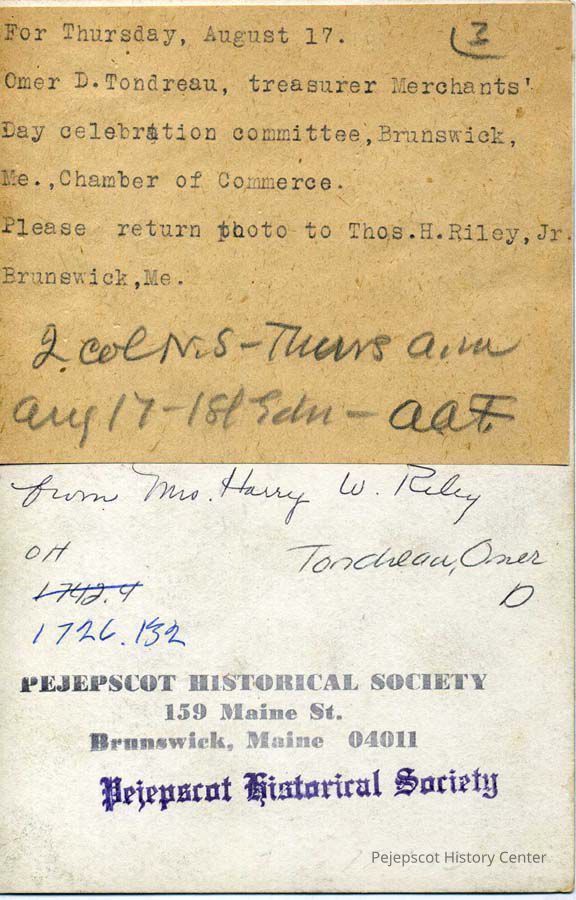 For Thursday, August 17.
3
Omer D.Tondreau, treasurer Merchants'
Day celebration committee,Brunswick,
Me.,Chamber of Commerce.
Please return photo to Thos.H.Riley,Jr.
Brunswick,Me.
2 col N.S - Thurs a.m
Aug 17 - 1st Edn - aaF
from Mrs. Harry W. Riley
OH
Tondreau, Omer
D
1742.4
1726.132
PEJEPSCOT HISTORICAL SOCIETY
159 Maine St.
Brunswick, Maine 04011
Pejepscot Historical Society
Pejepscot History Center